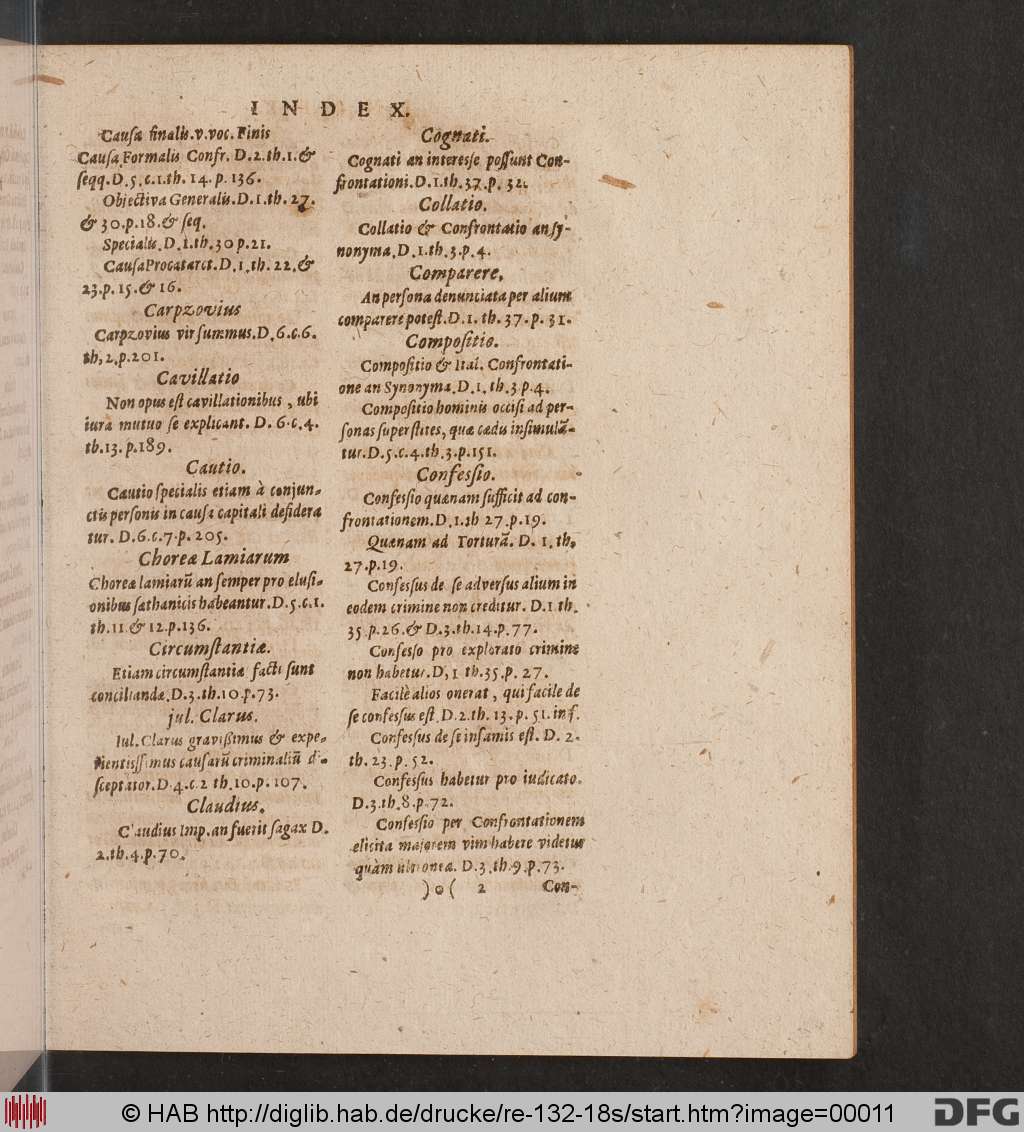 INDEX.
Cauſa finalis.v.voc.Finis
Cauſa Formalis Confr. D.2.th.1.&
ſeqq.D.5.c.1.th. 14.p.136.
Objectiva Generalis.D.1.th. 27.
& 30.p.18.& ſeq.
Specialis.D.1.th.30 p.21.
Cauſa Procatarct.D.1.th. 22.&
23.p. 15.& 16.
Carpzovius
Carpzovius vir ſummus.D.6.c.6.
th.2.p.201.
Cavillatio
Non opus eſt cavillationibus, ubi
iura mutuo ſe explicant. D. 6.c.4.
th.13.p.189.
Cautio.
Cautio ſpecialis etiam à conjun-
ctis perſonis in cauſa capitali deſidera
tur. D.6.c.7.p. 205.
Choreæ Lamiarum
Choreæ lamiarũ an ſemper pro eluſi-
onibus ſathanicis habeantur.D.5.c.1.
th.11 & 12.p.136.
Circumſtantiæ.
Etiam circumſtantiæ facti ſunt
conciliandæ.D.3.th.10.p.73.
jul. Clarus.
Iul. Clarus gravißimus & expe-
rientiſſimus cauſarũ criminaliũ di-
ſceptator.D.4.c.2 th.10.p. 107.
Claudius.
Claudius Imp.an fuerit ſagax D.
2.th.4.p.70.
Cognati.
Cognati an intereſſe poſſunt Con-
frontationi.D.1.th.37.p. 32.
Collatio.
Collatio & Confrontatio an ſy-
nonyma.D.1.th.3.p.4.
Comparere.
An perſona denunciata per alium
comparere poteſt.D.1. th. 37.p. 31.
Compoſitio.
Compoſitio & Ital. Confrontati-
one an Synonyma.D.1.th.3 p.4.
Compoſitio hominis occiſi ad per-
ſonas ſuperſtites, quæ cædis inſimulã-
tur.D.5.c.4.th.3.p.151.
Confeſsio.
Confeſsio quænam ſufficit ad con-
frontationem.D.1.th 27.p.19.
Quænam ad Torturã. D. 1. th.
27.p.19.
Confeſsus de ſe adverſus alium in
eodem crimine non creditur. D.1 th.
35.p.26.& D.3.th.14.p.77.
Confeſso pro explorato crimine
non habetur.D,1 th.35.p. 27.
Facilè alios onerat, qui facile de
ſe confeſsus eſt.D.2.th. 13.p. 51. inf.
Confeſsus de ſe infamis eſt. D. 2.
th. 23.p. 52.
Confeſsus habetur pro iudicato.
D.3.th.8.p.72.
Confeſsio per Confrontationem
elicita majorem vim habere videtur
quàm ultronea. D.3.th.9.p.73.
)o( 2 Con-
© HAB http://diglib.hab.de/drucke/re-132-18s/start.htm?image=00011
DFG